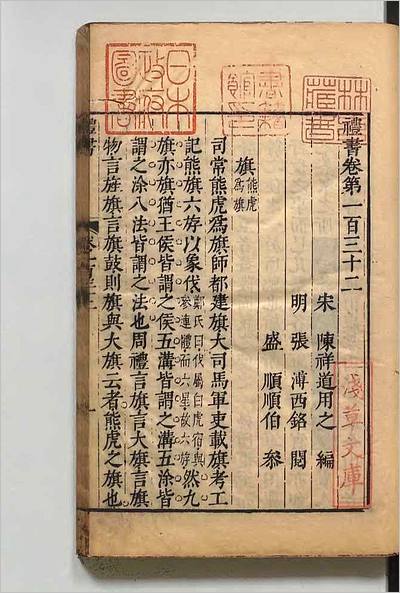 禮書卷第一百三十二
宋 陳祥道用之 編
明 張溥西銘 閲
盛順順伯 叅
旗熊虎爲旗
司常熊虎爲旗師都建旗大司馬軍吏載旗考工
記熊旗六斿以象伐鄭氏曰伐屬白虎宿與參連體而六星故六斿然九
旗亦旗猶王侯皆謂之侯五溝皆謂之溝五涂皆
謂之涂八法皆謂之法也周禮言旗言大旗言旗
物言旌旗言旗鼓則旗與大旗云者熊虎之旗也
禮書
林氏藏書
書籍館印
日本政府圖書
淺草文庫